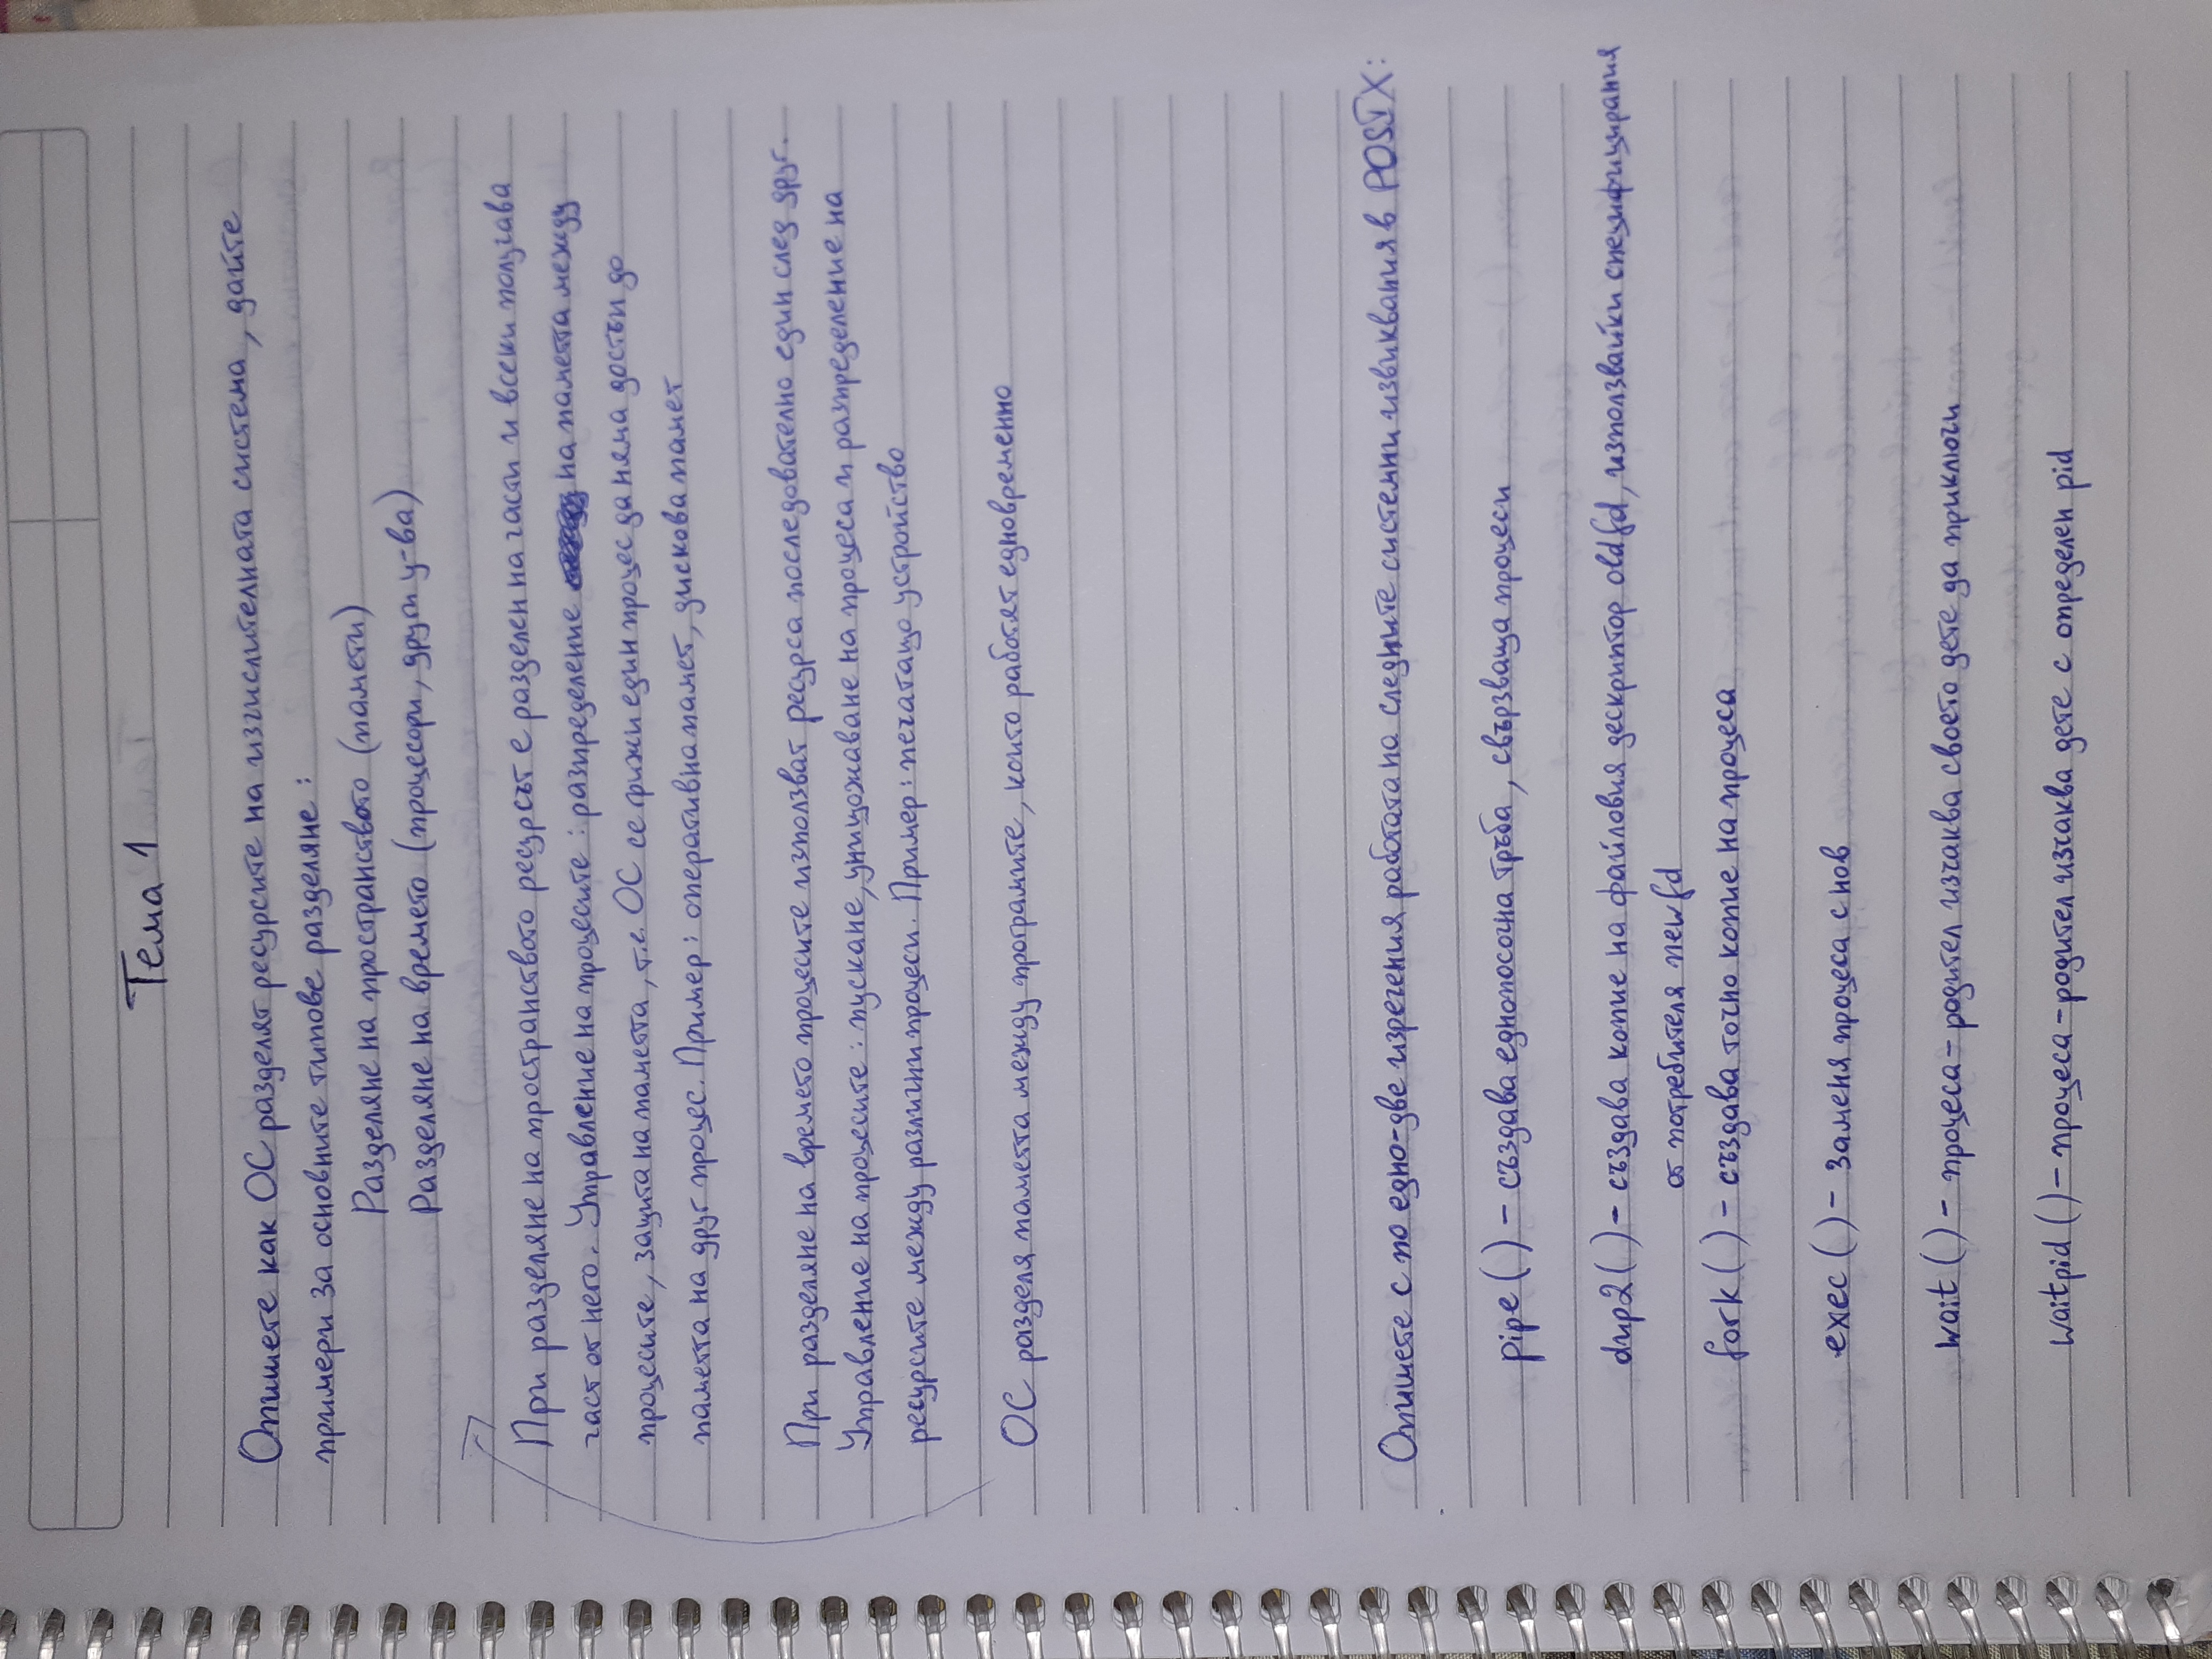 Тема 1
Опишете как ОС разделят ресурсите на изчислителната система, дайте
примери за основните типове разделяне:
Разделяне на пространството (памети)
Разделяне на времето (процесори, други у-ва)
При разделяне на пространството ресурсът е разделен на части и всеки получава
част от него. Управление на процесите: разпределение на паметта между
процесите, защита на паметта, т.е. ОС се грижи един процес да няма достъп до
паметта на друг процес. Пример: оперативна памет, дискова памет
При разделяне на времето процесите използват ресурса последователно един след друг.
Управление на процесите: пускане, унищожаване на процеса и разпределение на
ресурсите между различни процеси. Пример: печатащо устройство
ОС разделя паметта между програмите, които работят едновременно
Опишете с по едно-две изречения работата на следните системни извиквания в POSIX:
pipe() - създава еднопосочна тръба, свързваща процеси
dup2() - създава копие на файловия дескриптор oldfd, използвайки специфицирания
от потребителя newfd
fork() - създава точно копие на процеса
exec() - заменя процеса с нов
wait() - процеса-родител изчаква своето дете да приключи
waitpid() - процеса-родител изчаква дете с определен pid